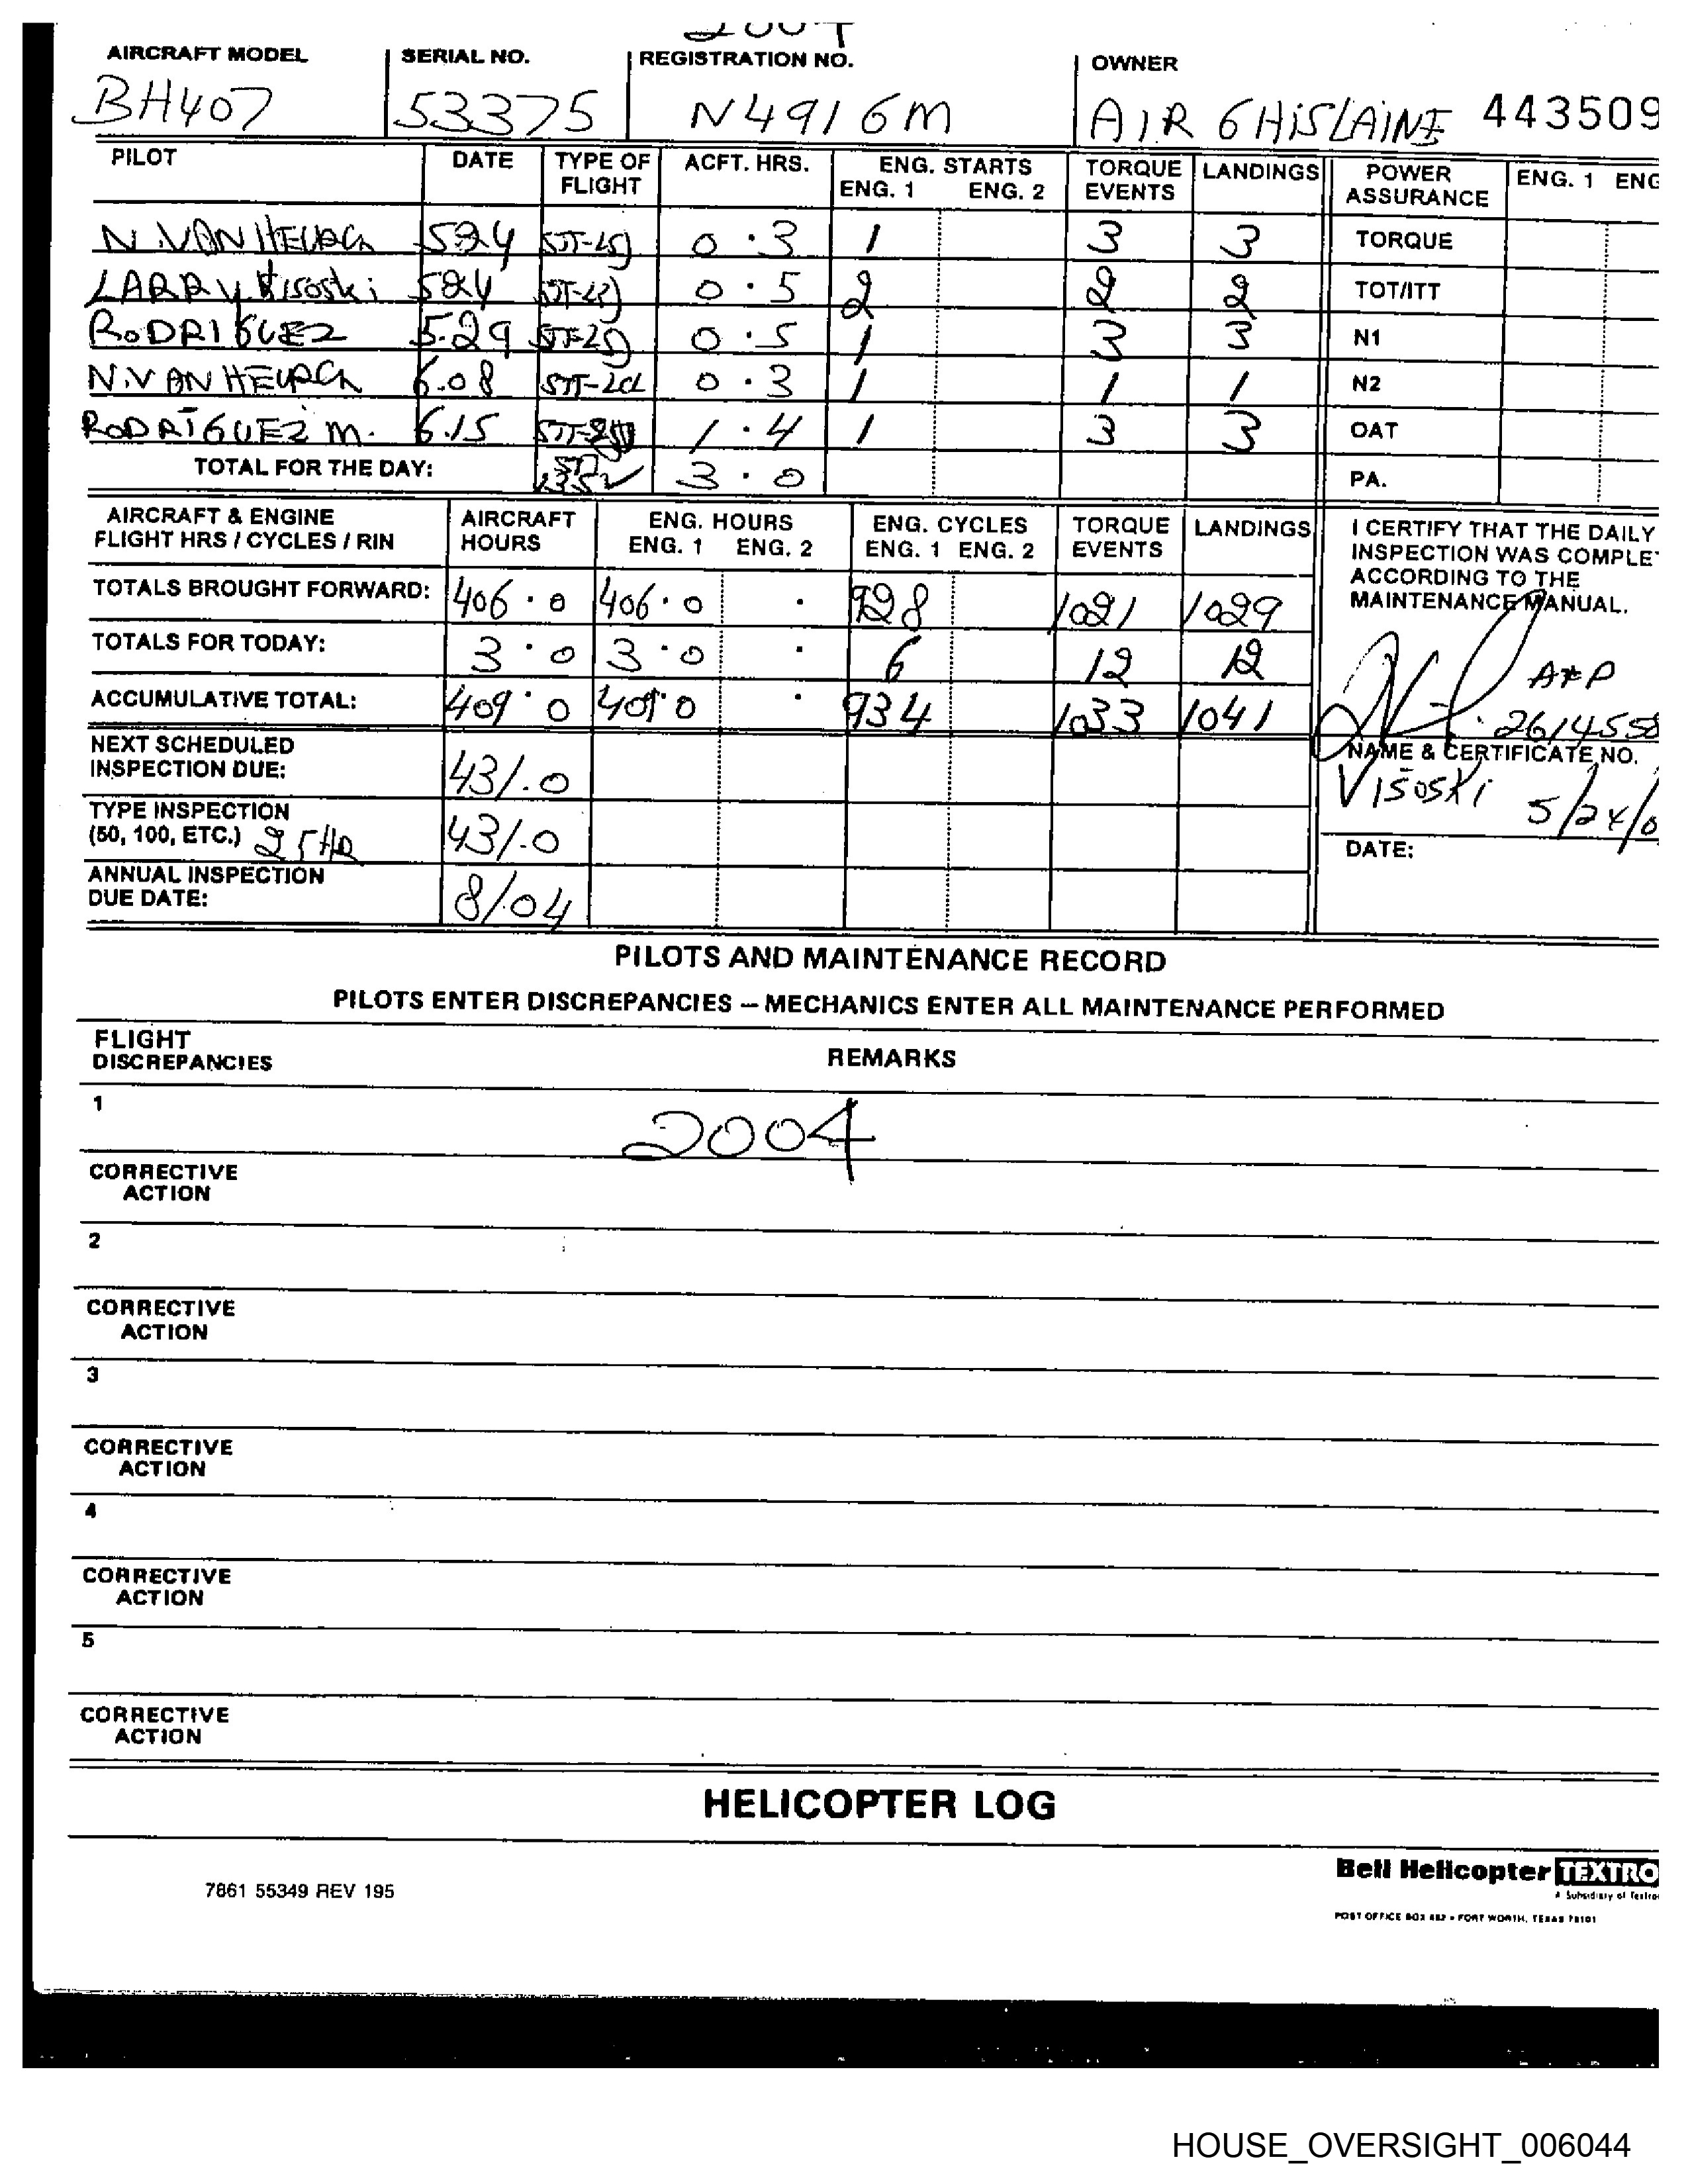 2004
AIRCRAFT MODEL SERIAL NO. REGISTRATION NO. OWNER
BH407 53375 N4916M AIR GHISLAINE 443509
PILOT DATE TYPE OF FLIGHT ACFT. HRS. ENG. STARTS ENG. 1 ENG. 2 TORQUE EVENTS LANDINGS POWER ASSURANCE ENG. 1 ENG
N. VAN HEURCK 524 0.3 1 3 3 TORQUE
LARRY Visoski 524 0.5 2 2 2 TOT/ITT
RODRIGUEZ 5.29 0.5 1 3 3 N1
N.VAN HEURCK 6.08 0.3 1 1 1 N2
RODRIGUEZ M. 6.15 1.4 1 3 3 OAT
TOTAL FOR THE DAY: 3.0 PA.
AIRCRAFT & ENGINE FLIGHT HRS / CYCLES / RIN AIRCRAFT HOURS ENG. HOURS ENG. 1 ENG. 2 ENG. CYCLES ENG. 1 ENG. 2 TORQUE EVENTS LANDINGS
I CERTIFY THAT THE DAILY
INSPECTION WAS COMPLE
ACCORDING TO THE
MAINTENANCE MANUAL.
TOTALS BROUGHT FORWARD: 406.0 406.0 . 928 1021 1029
TOTALS FOR TODAY: 3.0 3.0 . 6 12 12 A&P
ACCUMULATIVE TOTAL: 409.0 409.0 . 934 1033 1041 2614558
NAME & CERTIFICATE NO.
NEXT SCHEDULED INSPECTION DUE: 431.0 Visoski 5/24/0
TYPE INSPECTION (50, 100, ETC.) 25 HR 431.0
DATE:
ANNUAL INSPECTION DUE DATE: 8/04
PILOTS AND MAINTENANCE RECORD
PILOTS ENTER DISCREPANCIES – MECHANICS ENTER ALL MAINTENANCE PERFORMED
FLIGHT DISCREPANCIES REMARKS
1
2004
CORRECTIVE
ACTION
2
CORRECTIVE
ACTION
3
CORRECTIVE
ACTION
4
CORRECTIVE
ACTION
5
CORRECTIVE
ACTION
HELICOPTER LOG
Bell Helicopter TEXTRO
A Subsidiary of Textro
POST OFFICE BOX 482 • FORT WORTH, TEXAS 76101
7861 55349 REV 195
HOUSE_OVERSIGHT_006044